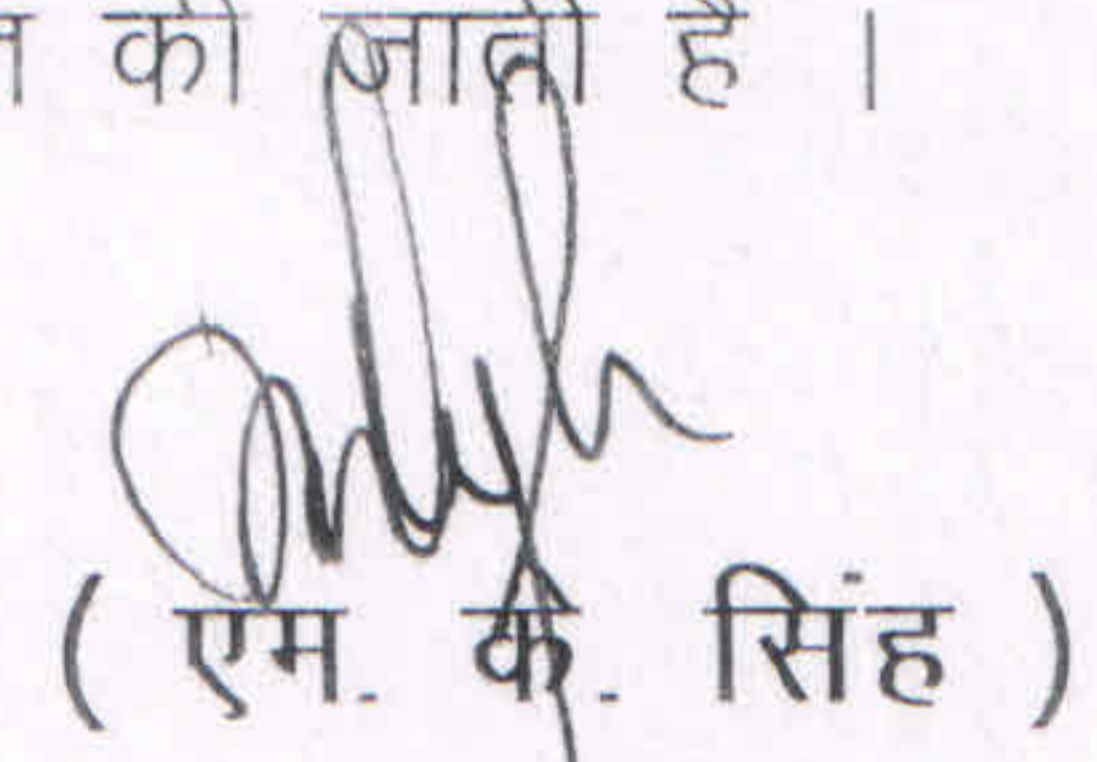 की जाती है ।
( एम. के. सिंह )